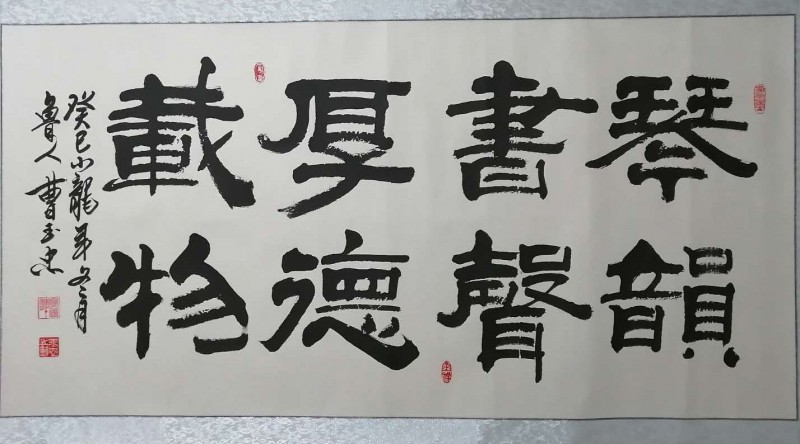 琴韻
書聲
厚德
載物
癸巳小龍年冬月
魯人曹玉忠